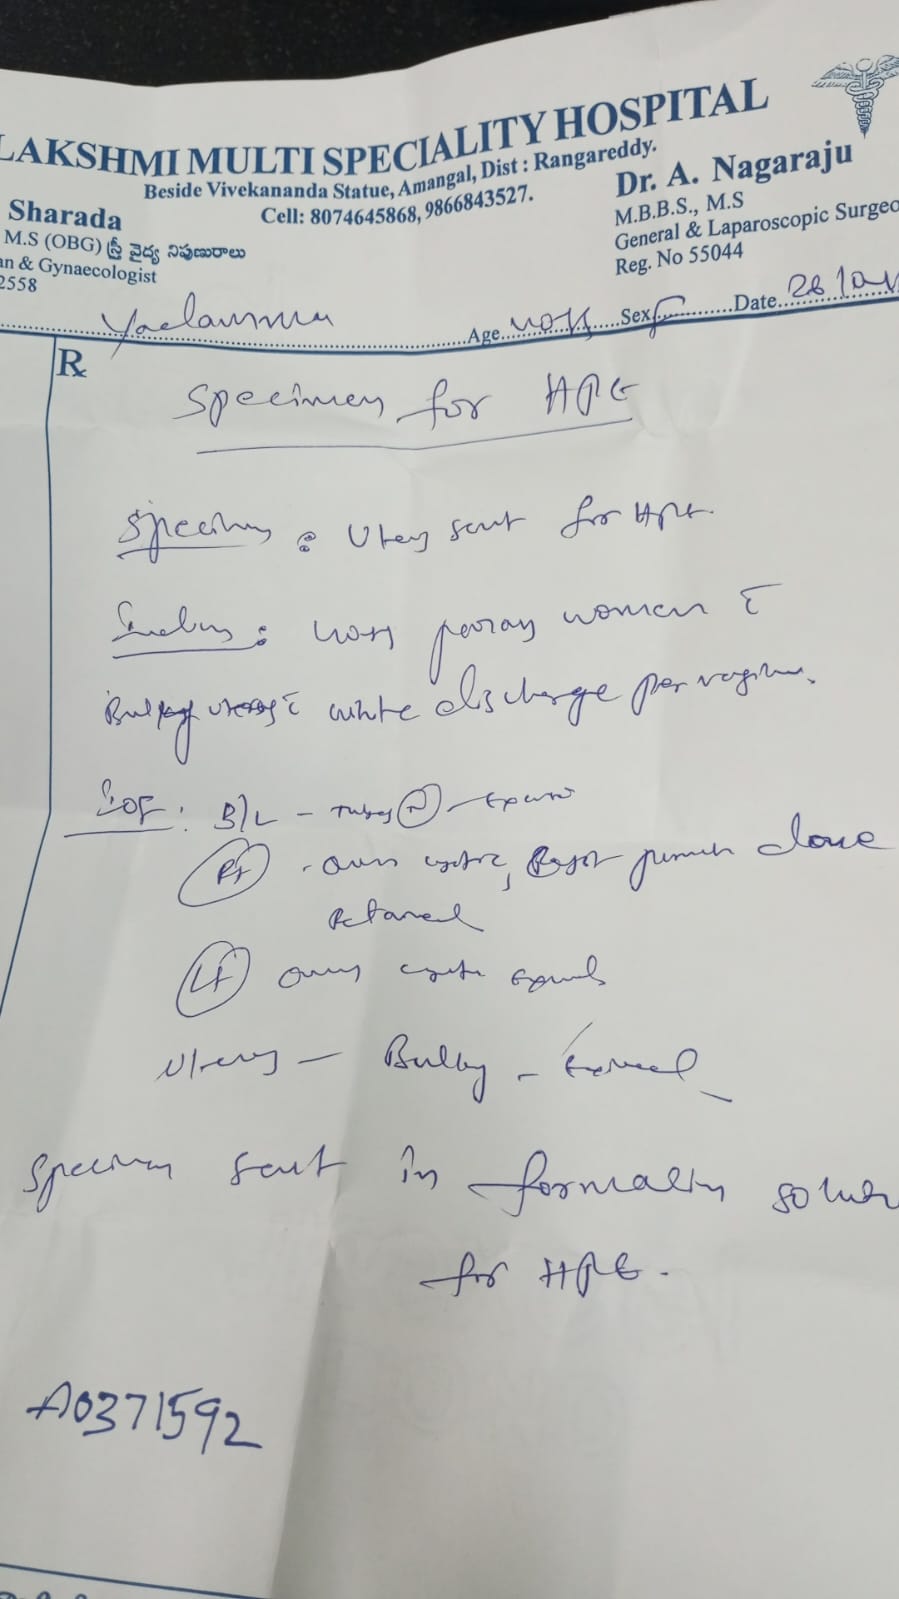 LAKSHMI MULTI SPECIALITY HOSPITAL
Beside Vivekananda Statue, Amangal, Dist : Rangareddy.
Cell: 8074645868, 9866843527.
Sharada
M.S (OBG) స్త్రీ వైద్య నిపుణురాలు
an & Gynaecologist
2558
Dr. A. Nagaraju
M.B.B.S., M.S
General & Laparoscopic Surgeo
Reg. No 55044
Age Sex F Date 28
Rx
Specimen for HPE
Specimen : Uterus sent for HPE.
women c̄
uterus c̄ white discharge per vagina.
B/L - Tubes (N)
(Rt) - Ovary cystic, done
Retained
(Lt) ovary cystic
Uterus - Bulky -
Specimen sent in formalin solution
for HPE.
A0371592